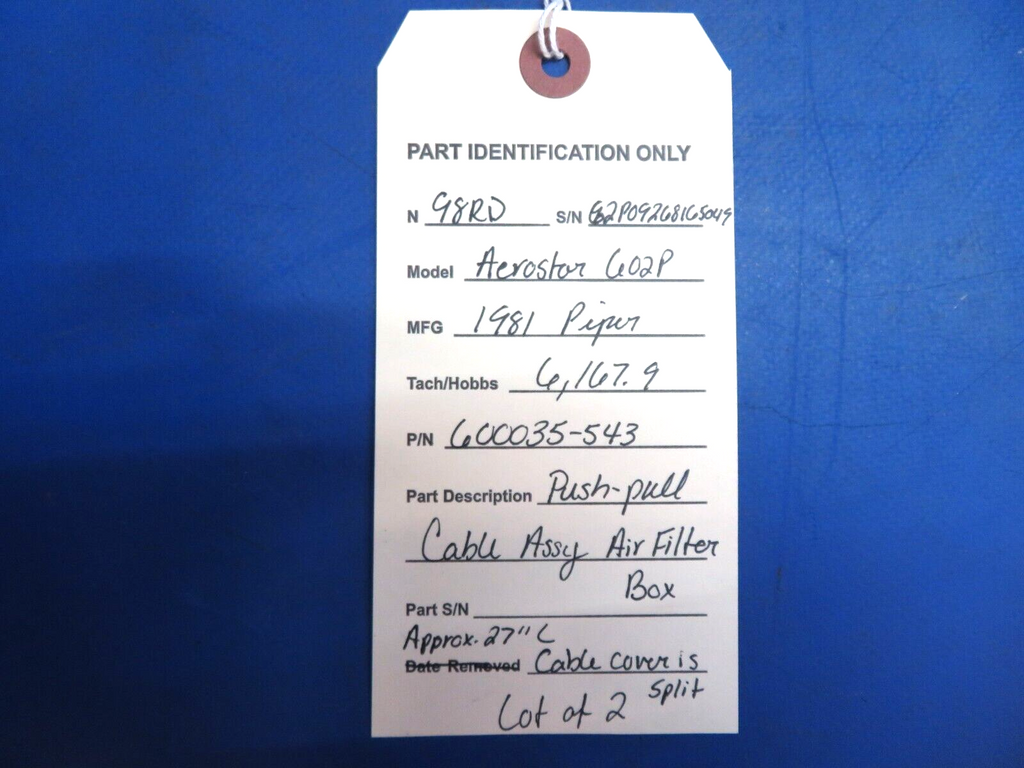 PART IDENTIFICATION ONLY
N 98RD S/N 62P09268165049
Model Aerostar 602P
MFG 1981 Piper
Tach/Hobbs 6,167.9
P/N 600035-543
Part Description Push-pull
Cable Assy Air Filter
Box
Part S/N
Approx. 27" L
Date Removed Cable cover is
split
Lot of 2